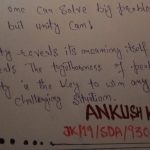 one can solve big proble
but unity can!
ty reveals its meaning itself
The togetherness of peo
y is the key to win any
challenging situation.
ANKUSH K
JK/19/SDA/930